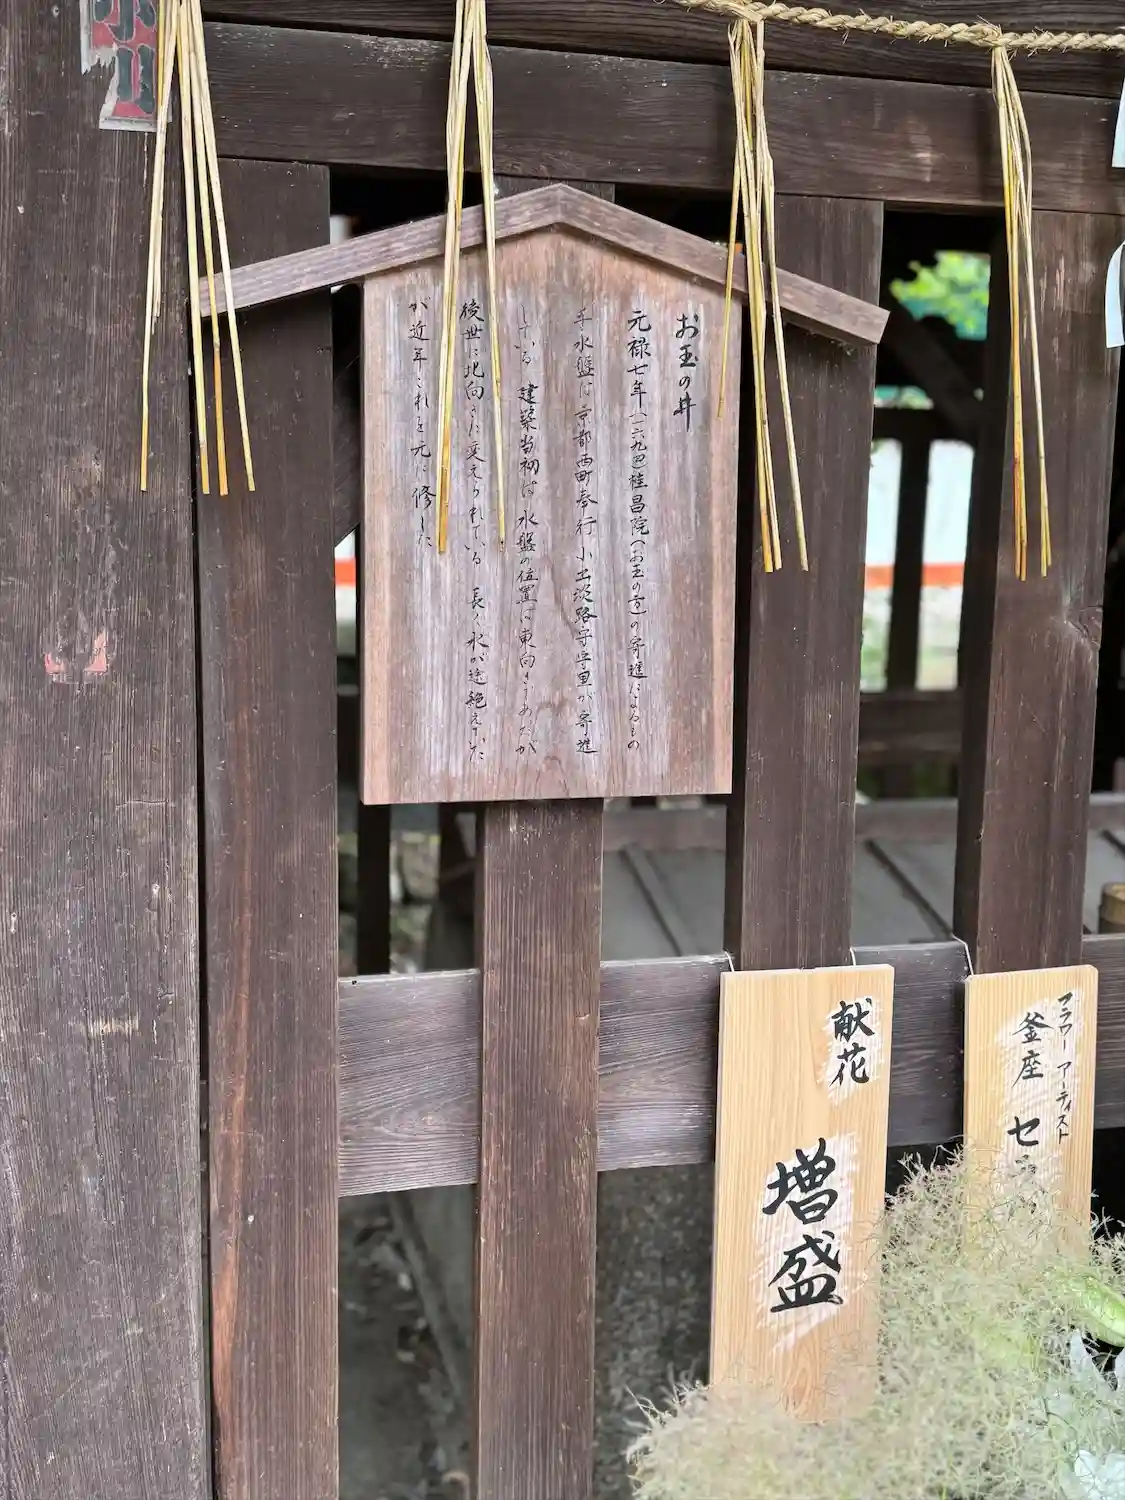 お玉の井
元禄七年(一六九四)桂昌院(お玉の方)の寄進によるもの
手水盤は京都西町奉行小出淡路守守里が寄進
している 建築当初は水盤の位置は東向きであったが
後世に北向きに変えられている 長く水が途絶えてた
が近年これを元に修した
献花
増盛
フラワーアーティスト
釜座 セ